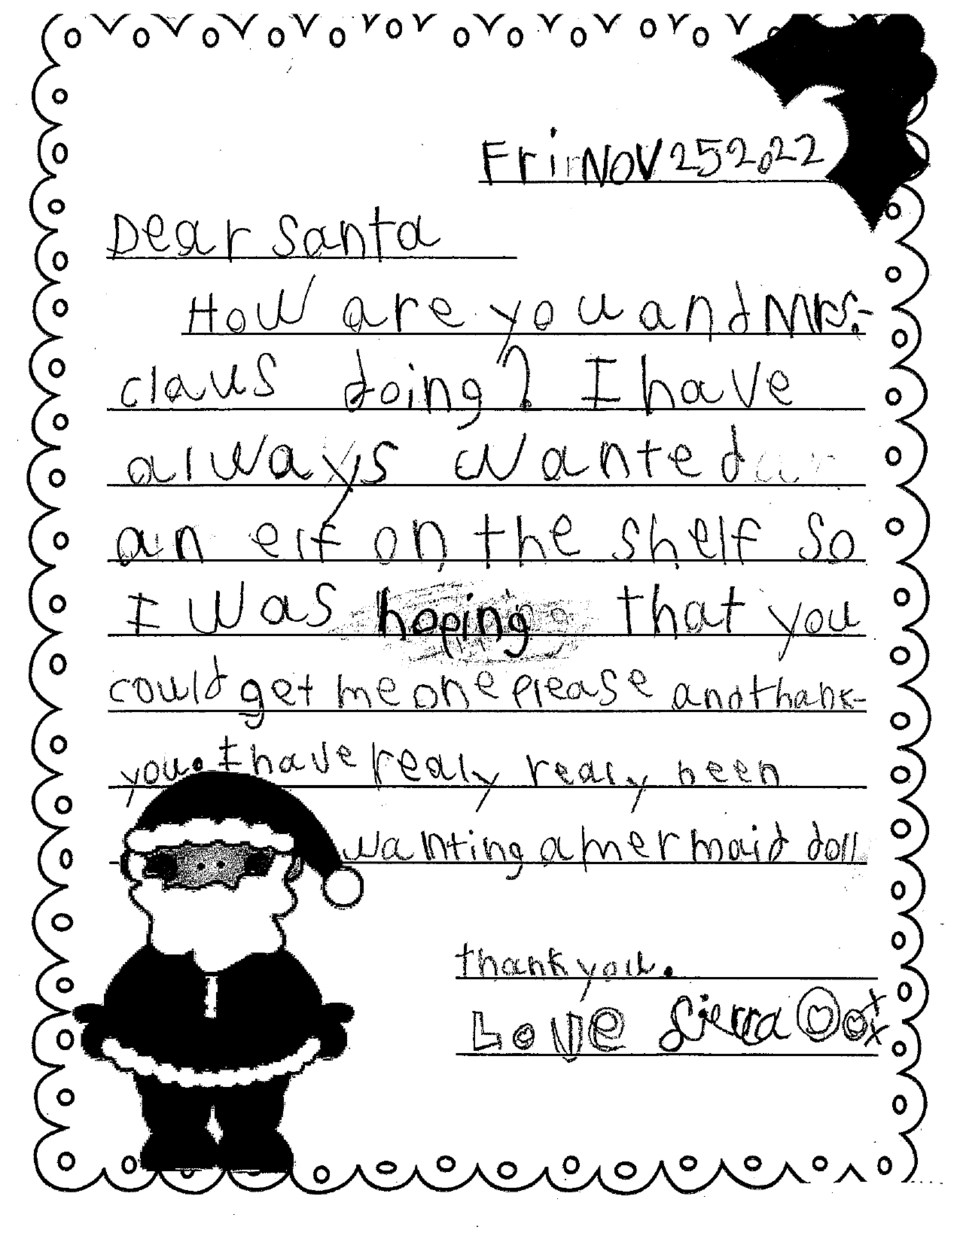 Fri Nov 25 2022
Dear Santa
How are you and Mrs.-
claus doing? I have
always wanted
an elf on the shelf so
I was hoping that you
could get me one please and thank-
you. I have realy realy been
wanting a mermaid doll
thank you.
Love Sierra OOxx